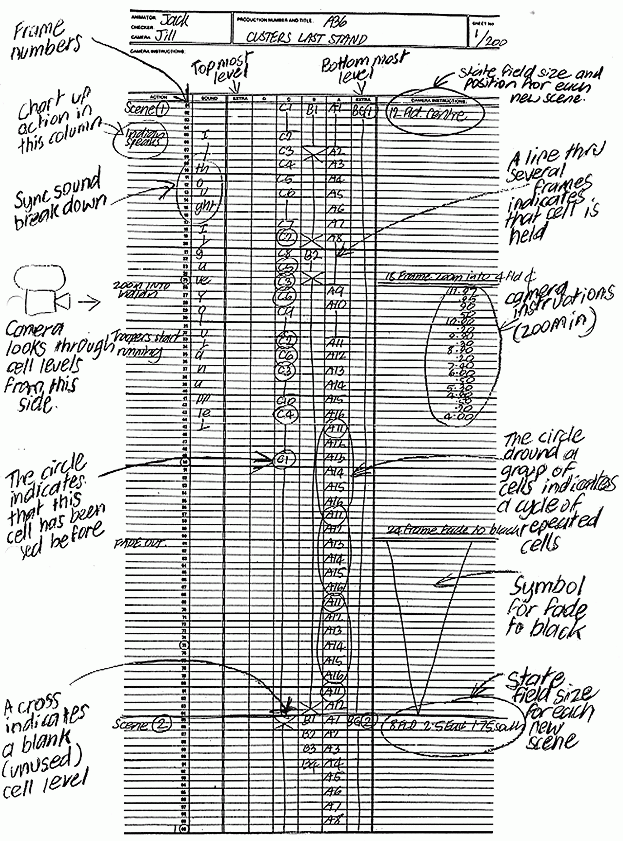 ANIMATOR Jack
CHECKER
CAMERA Jill
PRODUCTION NUMBER AND TITLE. A36
CUSTERS LAST STAND
SHEET NO
1/200
CAMERA INSTRUCTIONS:
Frame numbers
Top most level
Bottom most level
state field size and position for each new scene.
ACTION SOUND EXTRA D C B A EXTRA CAMERA INSTRUCTIONS
Scene 1
C1 B1 A1 BG 1
12 Fld. Centre
Chart up action in this column
Indian speaks
Sync sound breakdown
I
C2
C3 A2
C4 A3
th
C5 A4
o
C6 A5
u
A6
ght
C7 A7
I
C2 A8
C8 B2
g
u
ve
A9
A10
y
o
u
A line thru several frames indicates that cell is held
16 Frame zoom into 4 fld
zoom into Indian
camera instructions (zoom in)
Camera looks through cell levels from this side.
Troopers start running
C9
C2 A11
C6 A12
C3 A13
A14
C10 A15
C4 A16
4.00
A11
A12
A13
A14
A15
A16
The circle indicates that this cell has been used before
C1
The circle around a group of cells indicates a cycle of repeated cells
A11
A12
A13
A14
A15
A16
24 frame fade to black
FADE OUT.
Symbol for fade to black
A11
A12
A13
A14
A15
A16
A11
A12
A cross indicates a blank (unused) cell level
State field size for each new scene
Scene 2
B1 A1 BG 2
8 FLD 2.5 East 1.75 South
B2 A2
B3 A3
B4 A4
A5
A6
A7
A8